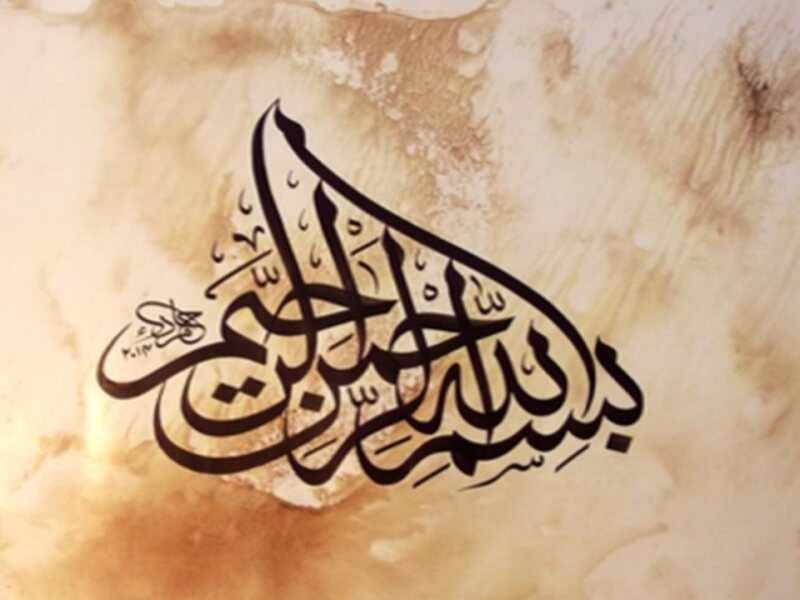 بسم الله الرحمن الرحيم
٢٠١٣